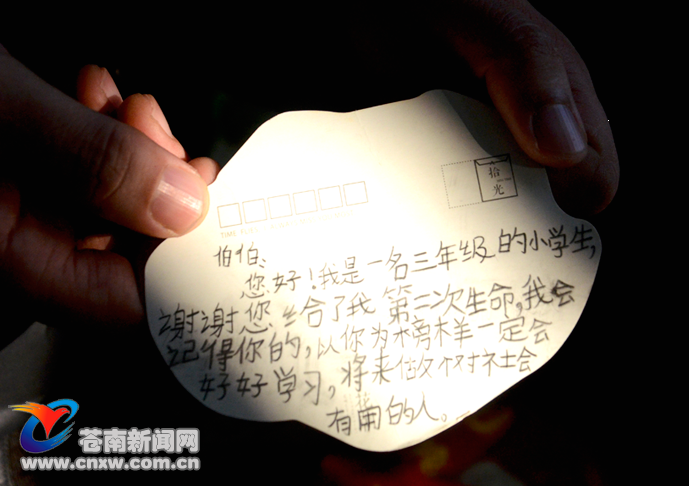 拾
光
伯伯、
您好！我是一名三年级的小学生,
谢谢您给了我第二次生命,我会
记得你的,以你为榜样一定会
好好学习,将来做个对社会
有用的人。
苍南新闻网
www.cnxw.com.cn